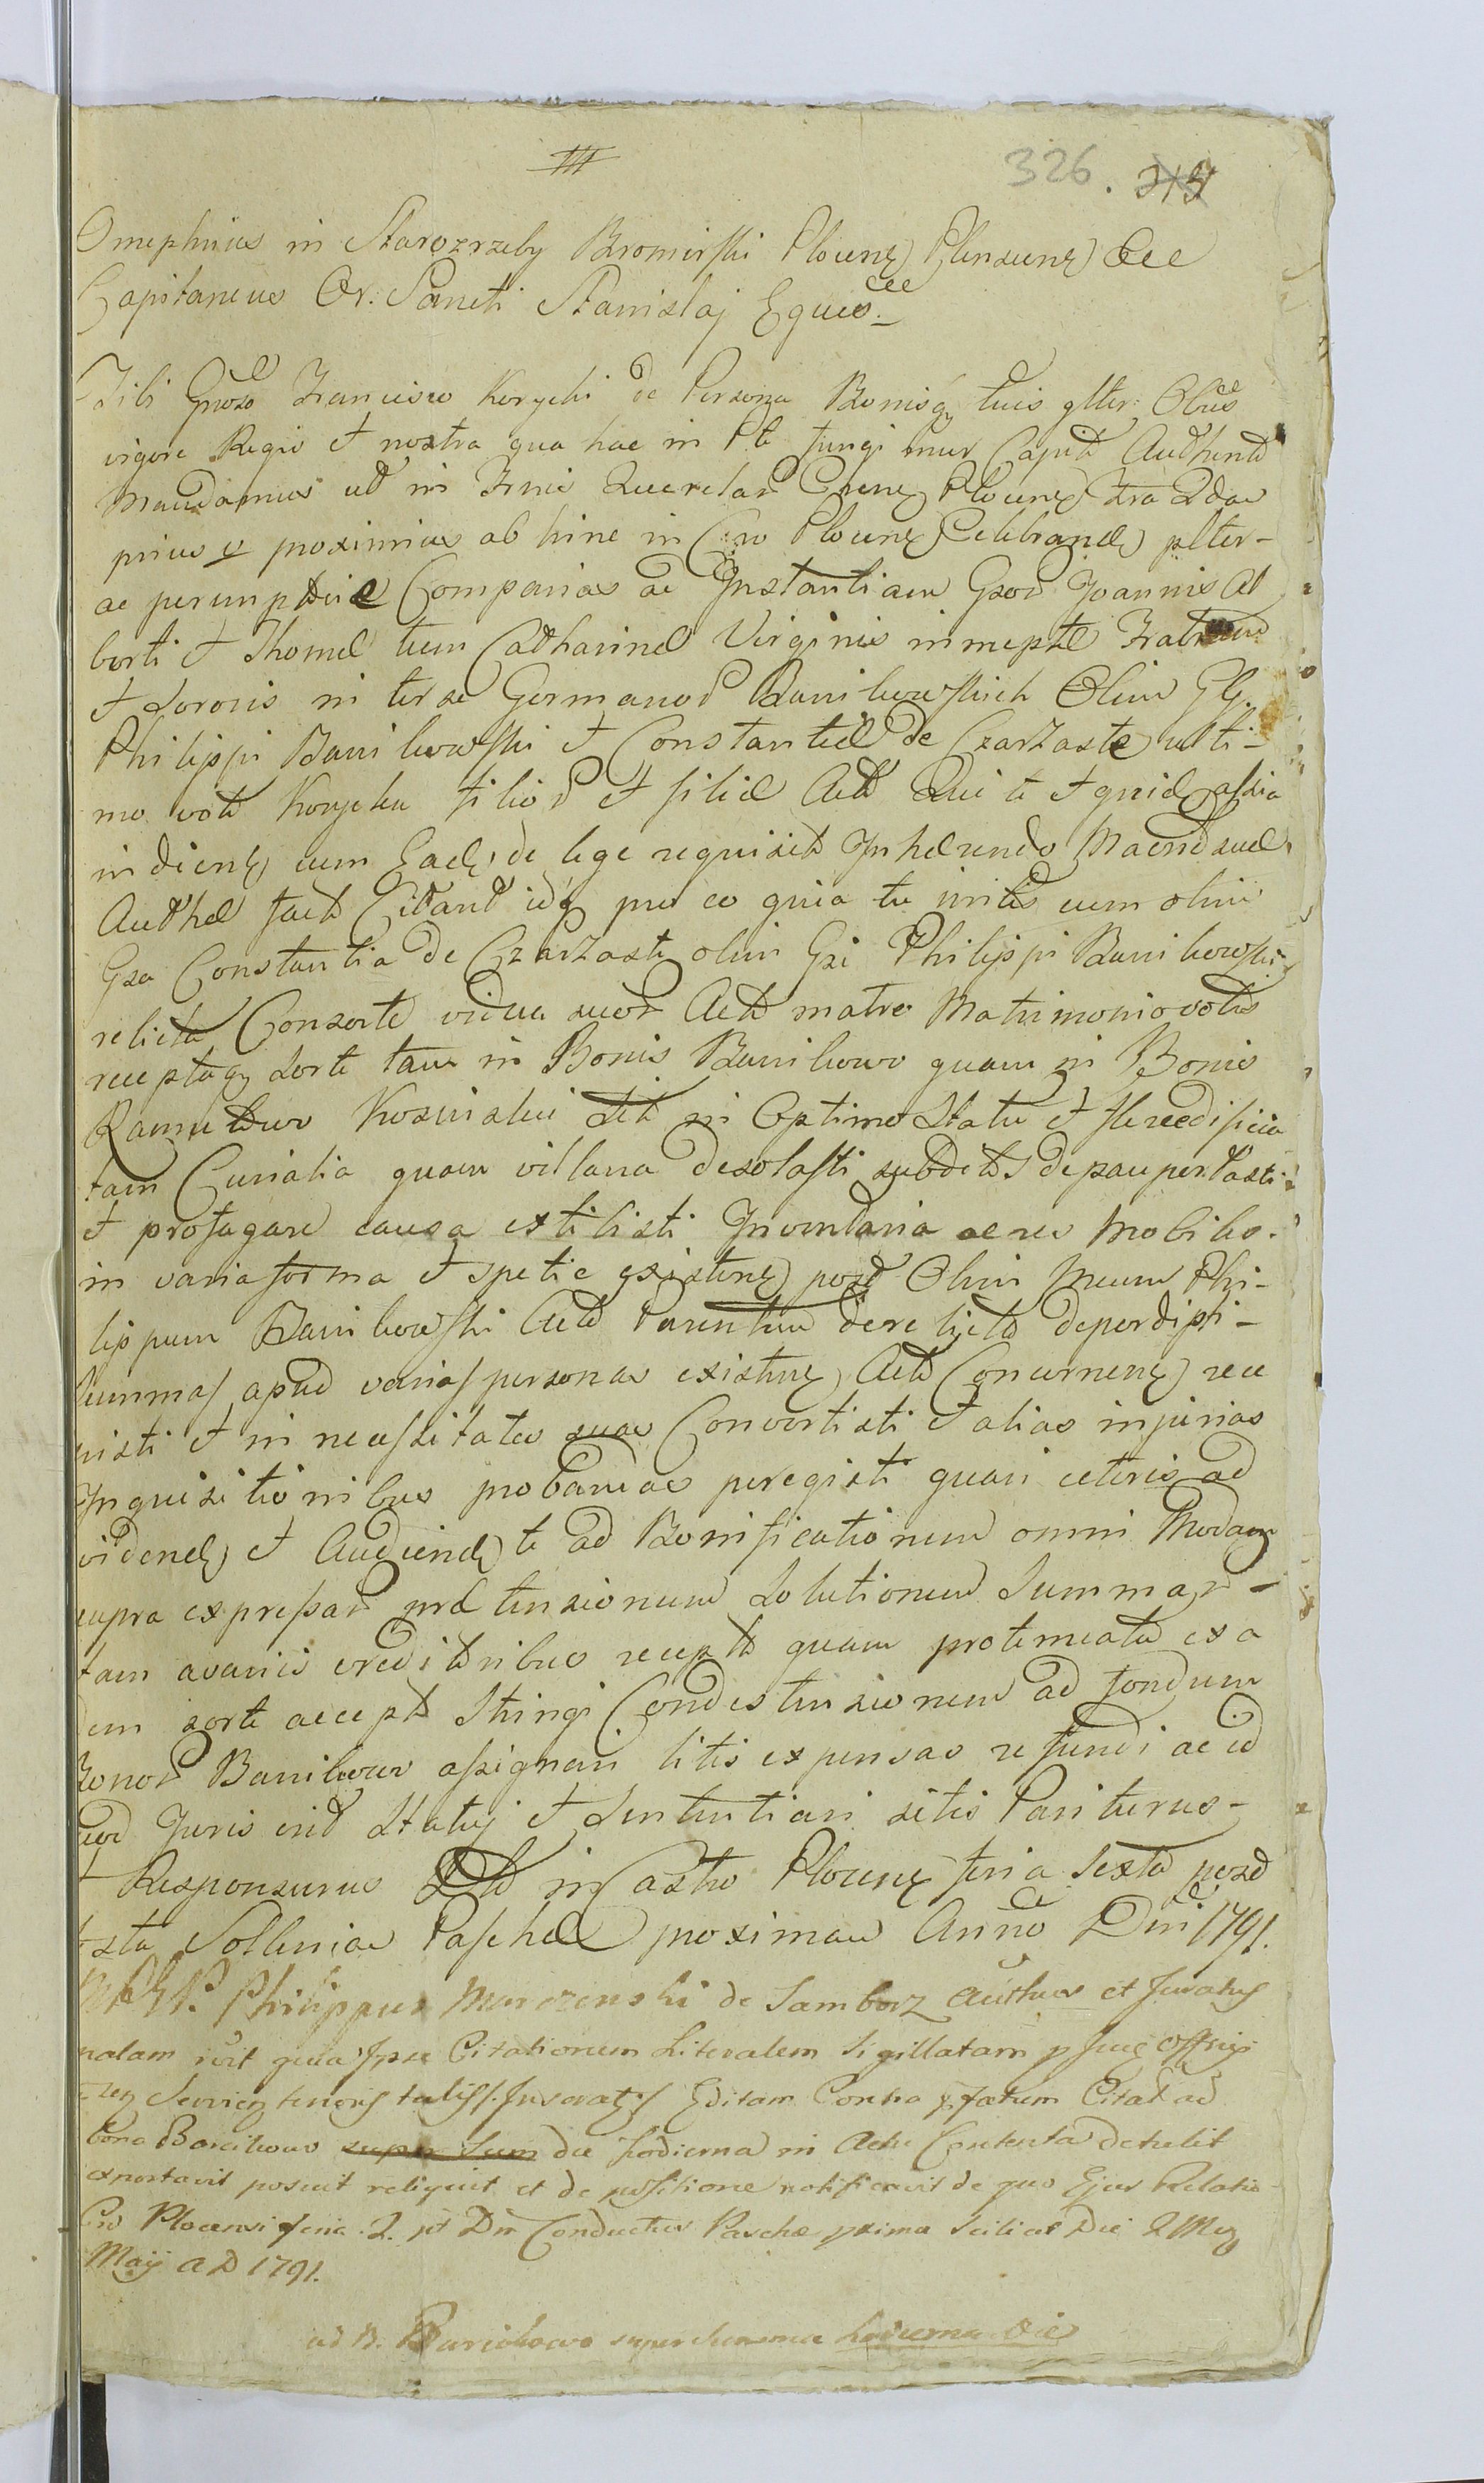 III
326. 315
Onuphrius in Starozrzeby Bromirski Plocens) Plensens) &c
Capitaneus Or: Sancti Stanislaj Eques
Tibi Gnoso Francisco Korycki de Persona Bonisq tuis glter Obus
vigore Regio et nostra qua hac in Pte fungimur Capit Authorit
Mandamus ut in Trmis Querelar Crens Plocens fra 2da
prius et proximius ab hinc in Cro Plocens Celebrand) plter-
ac peremptorie Compareas ad Instantiam Gsor Joannis Al
berti et Thomæ tum Catharinæ Virginis innuptæ Fratrum
et Sororis inter se Germanor Barcikowskich Olim G G.
Philippi Barcikowski et Constantiæ de Czarzaste ulti-
mo voto Korycka filior et filiæ Act Qui te
indiens) cum Ead) de lege requisit Inhærendo Mand suæ
Authæ fact Citant idq pro eo quia tu initis cum olim
Gsa Constantia de Czarzaste olim Gsi Philippi Barcikowski
relicta Consorte vidua suor Act matre Matrimonio votis
receptaq sorte tam in Bonis Barcikowo quam in Bonis
Ramutowo Kosinskie sit in Optimo Statu et ædificia
tam Curialia quam villana desolasti subditos depauperasti
et profugare causa extitisti Inventaria ac res Mobiles
in varia forma et spetie existens) post Olim Meum Phi-
lippum Barcikowski Act Parentem derelicta deperdisti-
summas apud varias personas existens) Act Concernens) rece
pisti et in necessitates suas Convertisti et alias injurias
Inquisitionibus probandas peregisti quari ceteris ad
vidend) et Audiend) te ad Bonificationem omni Modam
supra expressar prætensionum Solutionem Summar-
tam a variis creditoribus recept quam protimeata ex a
dem sorte accept Stringi Condestensionem ad fondum
Bonor Barcikowo assignari litis expensas refundi ac id
quod Juris erit Statuj et Sententiari sitis Pariturus-
et Responsurus Dt in Castro Plocens feria Sexta post
festa Sollenia Paschæ proximam Anno Dni 1791.
Philippus Murczenski de Samborz Authus et Juratus
palam rcvit quia Ipse Citationem Literalem Sigillatam p
Servien tenoris talis Inserat Editam Contra pfatum Citat ad
bona Barcikowo super Sum die hodierna in Actu Contenta detulit
exportavit posuit reliquit et de positione notificavit de quo Ejus Relatio
Cro Plocensi feria 2. pt Dm Conductus Paschæ pxima Scilicet Die 2 Msq
Maij A D 1791.
ad B. Barcikowo super Summa hodierna die